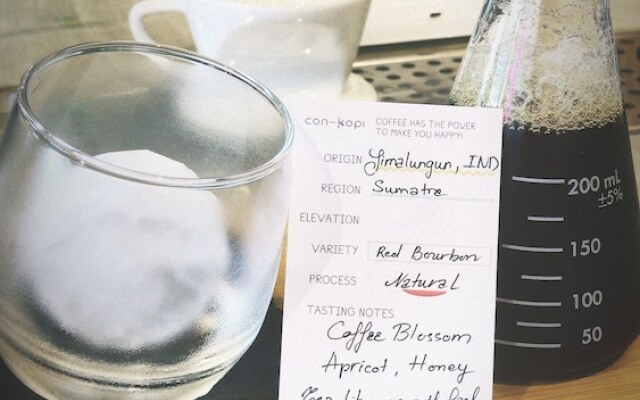 con-kopi
COFFEE HAS THE POWER
TO MAKE YOU HAPPY!
ORIGIN Simalungun, IND
REGION Sumatra
ELEVATION
VARIETY Red Bourbon
PROCESS Natural
TASTING NOTES
Coffee Blossom
Apricot, Honey
200 mL
±5%
150
100
50